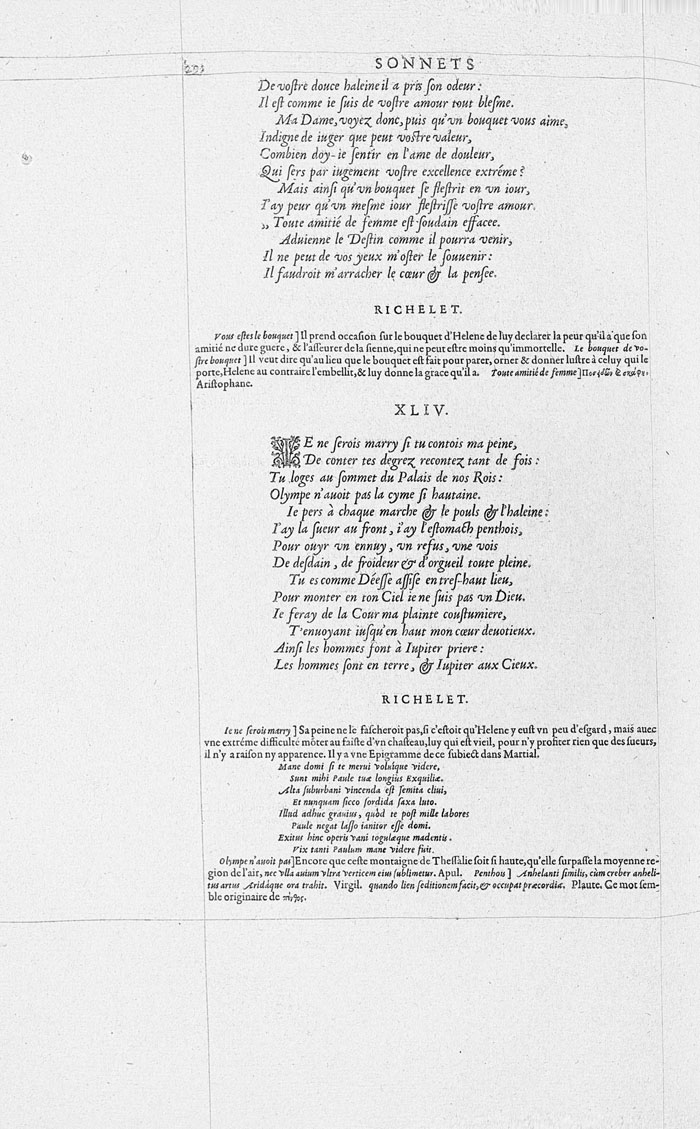 293
SONNETS
De voſtre douce haleine il a pris ſon odeur :
Il eſt comme ie ſuis de voſtre amour tout bleſme.
Ma Dame, voyez donc, puis qu'vn bouquet vous aime,
Indigne de iuger que peut voſtre valeur,
Combien doy-ie ſentir en l'ame de douleur,
Qui ſers par iugement voſtre excellence extréme ?
Mais ainſi qu'vn bouquet ſe fleſtrit en vn iour,
I'ay peur qu'vn meſme iour fleſtriſſe voſtre amour.
„ Toute amitié de femme eſt ſoudain effacee.
Aduienne le Deſtin comme il pourra venir,
Il ne peut de vos yeux m'oſter le ſouuenir :
Il faudroit m'arracher le cœur & la penſee.
RICHELET.
Vous eſtes le bouquet ] Il prend occaſion ſur le bouquet d'Helene de luy declarer la peur qu'il a que ſon
amitié ne dure guere, & l'aſſeurer de la ſienne, qui ne peut eſtre moins qu'immortelle. Le bouquet de vo-
ſtre bouquet ] Il veut dire qu'au lieu que le bouquet eſt fait pour parer, orner & donner luſtre à celuy qui le
porte, Helene au contraire l'embellit, & luy donne la grace qu'il a. Toute amitié de femme ]
Ariſtophane.
XLIV.
IE ne ſerois marry ſi tu contois ma peine,
De conter tes degrez recontez tant de fois :
Tu loges au ſommet du Palais de nos Rois :
Olympe n'auoit pas la cyme ſi hautaine.
Ie pers à chaque marche & le pouls & l'haleine :
I'ay la ſueur au front, i'ay l'eſtomach penthois,
Pour ouyr vn ennuy, vn refus, vne vois
De deſdain, de froideur & d'orgueil toute pleine.
Tu es comme Déeſſe aſſiſe en treſ-haut lieu,
Pour monter en ton Ciel ie ne ſuis pas vn Dieu.
Ie feray de la Cour ma plainte couſtumiere,
T'enuoyant iuſqu'en haut mon cœur deuotieux.
Ainſi les hommes font à Iupiter priere :
Les hommes ſont en terre, & Iupiter aux Cieux.
RICHELET.
Ie ne ſerois marry ] Sa peine ne le faſcheroit pas, ſi c'eſtoit qu'Helene y euſt vn peu d'eſgard, mais auec
vne extréme difficulté mōter au faiſte d'vn chaſteau, luy qui eſt vieil, pour n'y profiter rien que des ſueurs,
il n'y a raiſon ny apparence. Il y a vne Epigramme de ce ſubiect dans Martial.
Mane domi ſi te merui voluique videre,
Sunt mihi Paule tuæ longius Exquiliæ.
Alta ſuburbani vincenda eſt ſemita cliui,
Et nunquam ſicco ſordida ſaxa luto.
Illud adhuc grauius, quòd te poſt mille labores
Paule negat laſſo ianitor eſſe domi.
Exitus hinc operis vani togulæque madentis.
Vix tanti Paulum mane videre fuit.
Olympe n'auoit pas ] Encore que ceſte montaigne de Theſſalie ſoit ſi haute, qu'elle ſurpaſſe la moyenne re-
gion de l'air, nec vlla auium vltra verticem eius ſublimetur. Apul. Penthois ] Anhelanti ſimilis, cùm creber anheli-
tus artus Aridáque ora trahit. Virgil. quando lien ſeditionem facit, & occupat præcordia. Plaute. Ce mot ſem-
ble originaire de πένθος.